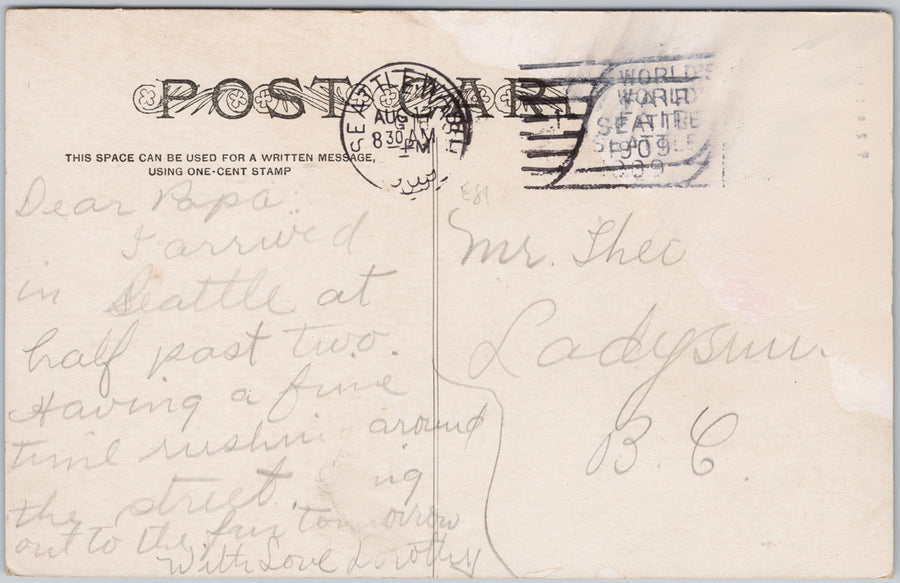 POST CARD
SEATTLE, WASH.
AUG
8 30 AM
PM
WORLD'S
WORLD'S
FAIR
SEATTLE
1909
THIS SPACE CAN BE USED FOR A WRITTEN MESSAGE,
USING ONE-CENT STAMP
E81
Dear Papa
I arrived
in Seattle at
half past two.
Having a fine
time rushin around
ing
the street.
out to the fair tomorrow
With Love Dorothy
Mr. Theo
Ladysm
B.C.